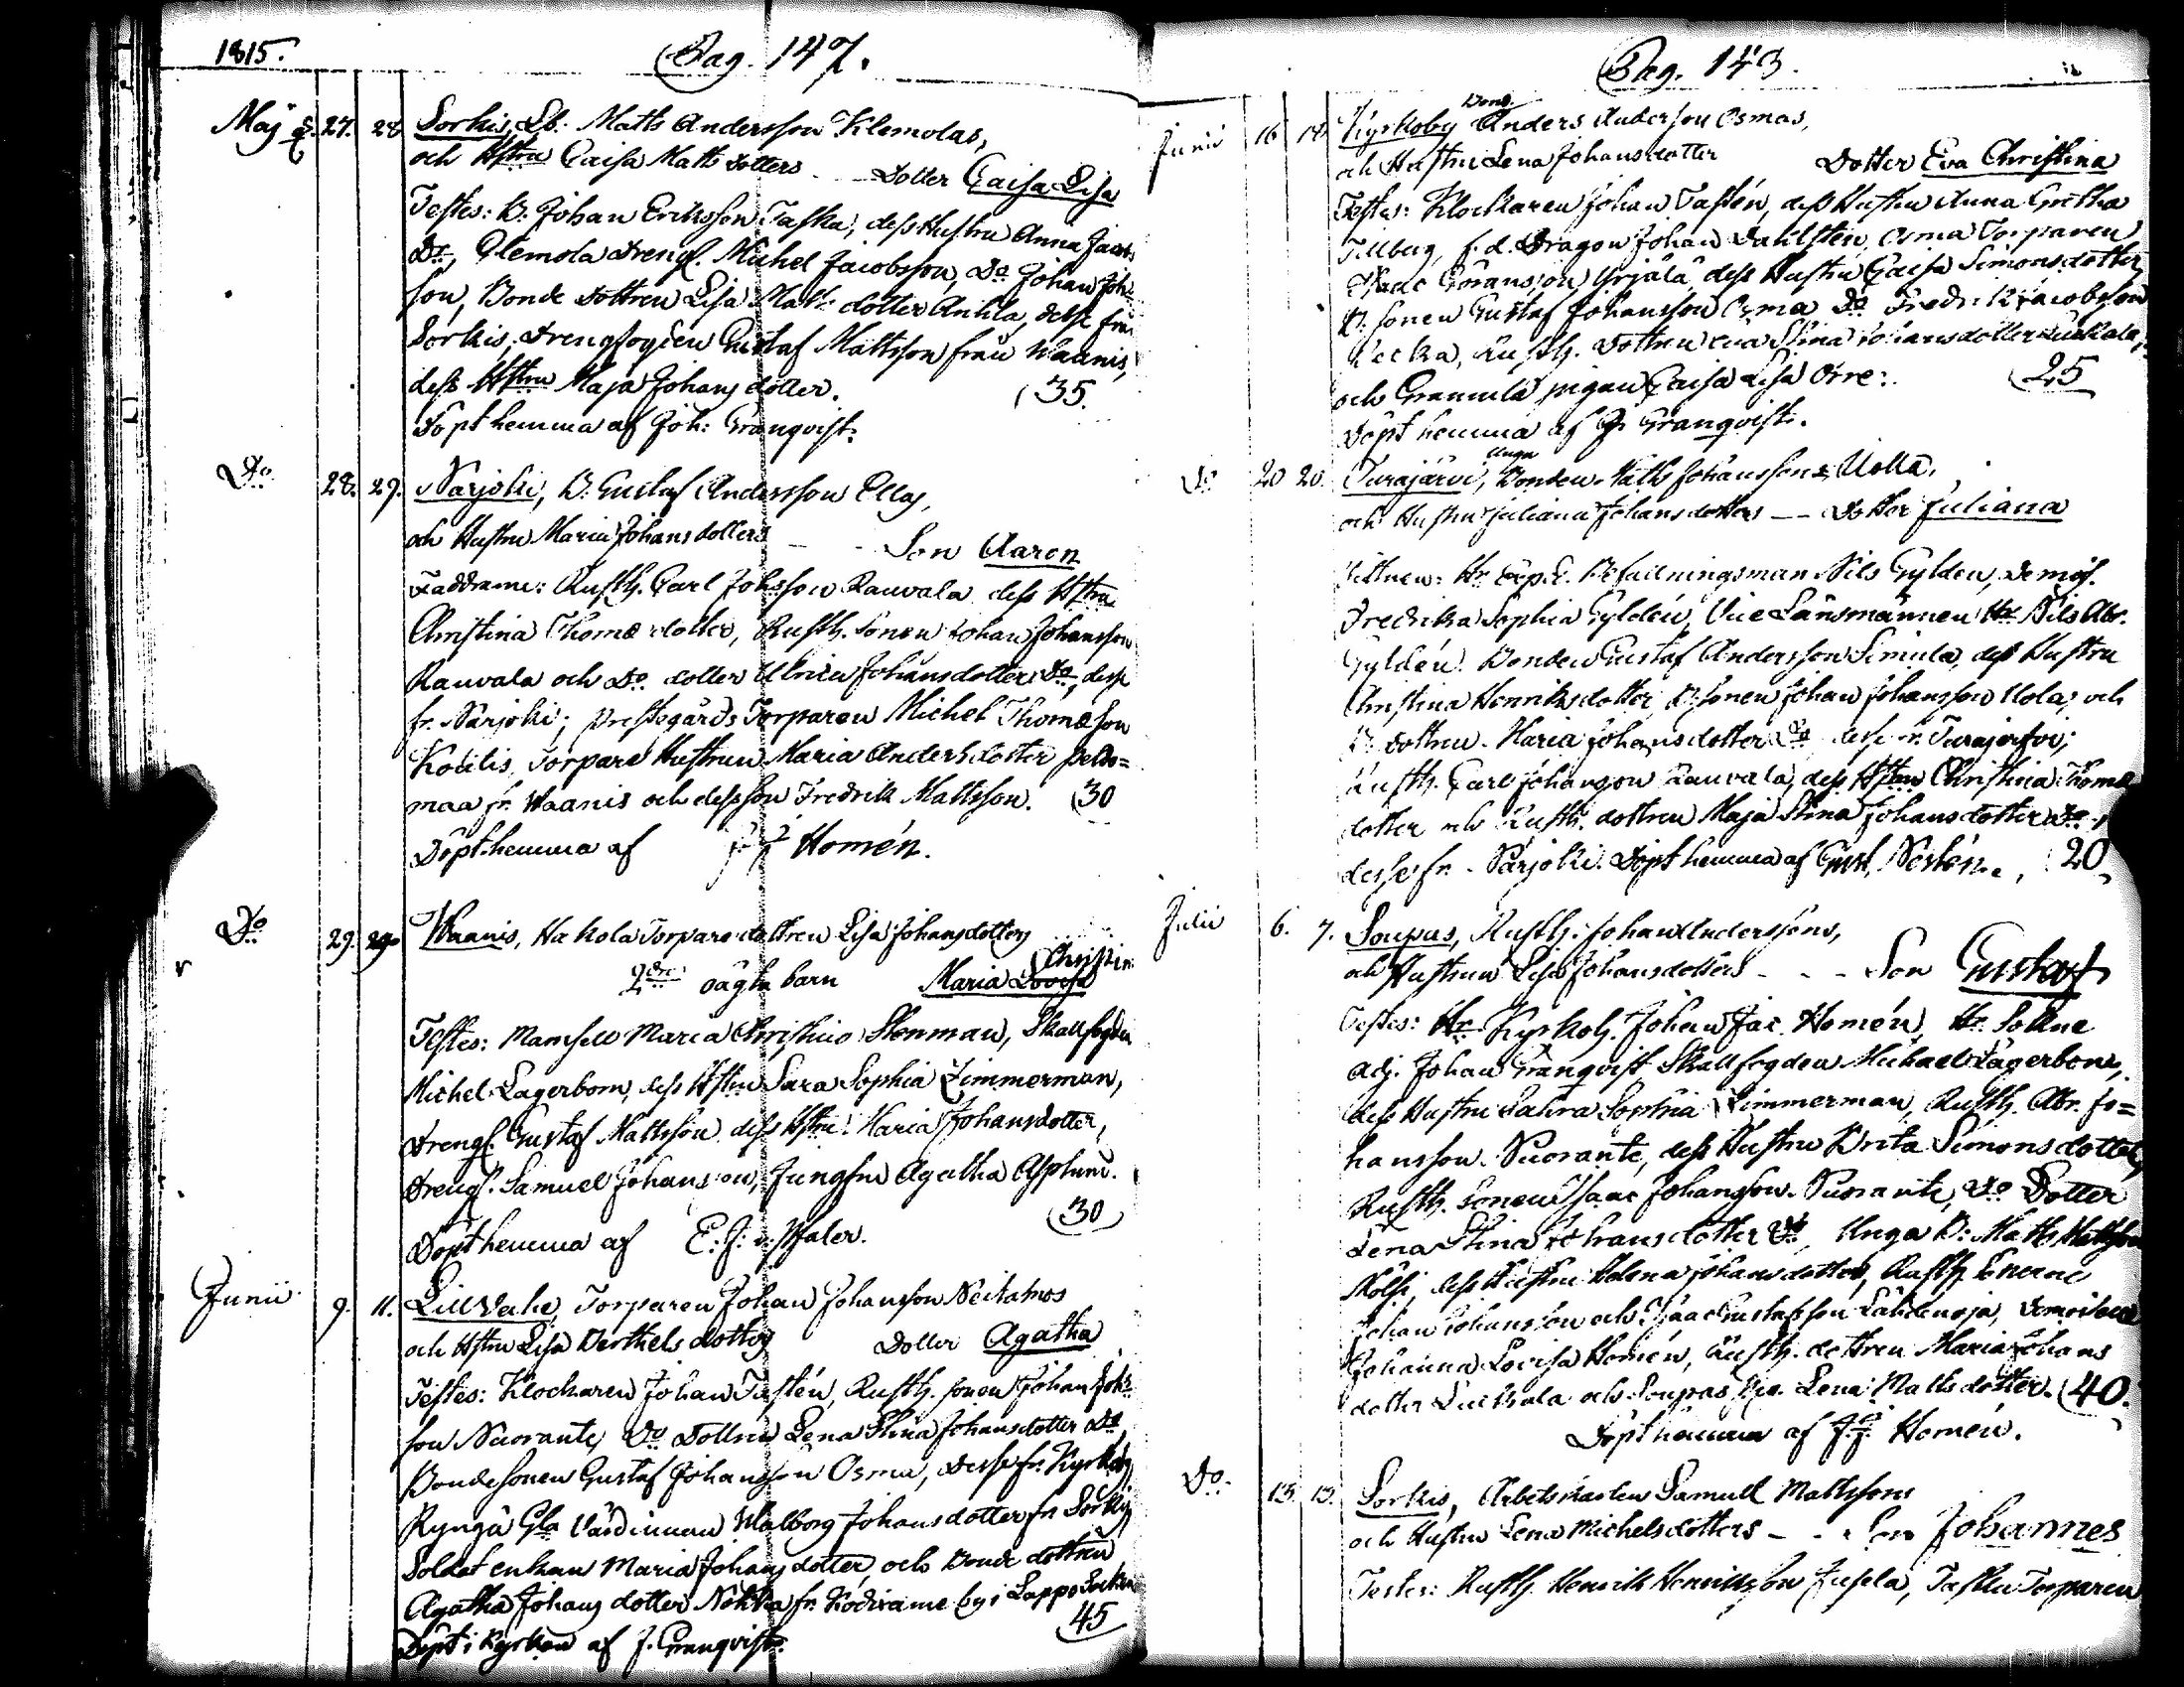 1815.
Pag. 147.
Maj 27. 28. Sorkis, Lb. Matts Andersson Klemolas,
och Hstru Caisa Matts dotters — Dotter Caisa Lisa
Testes: B. Johan Eriksson Taska, dess Hustru Anna Jacobs
Dr, Clemola Drengf. Michel Jacobsson, Do Johan Joh:
son, Bonde dottren Lisa Matts dotter Anhla, desse från
Sorkis, Drengfogden Gustaf Mattsson från Waanis,
dess Hstru Maja Johans dotter. (35.
Döpt hemma af Joh: Granqvist.
Do 28. 29. Särjoki, B. Gustaf Andersson Ellas,
och Hustru Maria Johans dotters — Son Aaron
Faddrarne: Rusth. Carl Johsson Rauvala dess Hstru
Christina Thomæ dotter, Rusth. Sonen Johan Johansson
Rauvala och Do dotter Ulrica Johansdotter Do, desse
fr. Särjoki; Prestegårds Torparen Michel Thomæson
Kotilis, Torpare Hustrun Maria Anders dotter Peldo=
maa fr. Waanis och dess son Fredrik Mattsson. (30
Döpt hemma af J. J. Homén.
Do 29. 29. Waanis, Hakola Torpare dottren Lisa Johansdotters
2dre oägta barn Maria Lovisa Christin
Testes: Mamsell Maria Christina Stenman, Skallfogden
Michel Lagerbom, dess Hstru Sara Sophia Zimmerman,
Drengf. Gustaf Mattsson dess Hstru Maria Johansdotter,
Drengf. Samuel Johansson, Jungfru Agatha Asplund.
Döpt hemma af E. J. v. Pfaler. (30)
Junii 9. 11. Lillvahe, Torparen Johan Johansson Neitamos
och Hstru Lisa Berthels dotters Dotter Agatha
Testes: Klockaren Johan Tastén, Rusth. sonen Johan Johs
son Nuorante, Do Dottren Lena Stina Johansdotter Do,
Bondesonen Gustaf Johansson Osma, desse fr. Kyrkoby
Rynga Gla Värdinnan Walborg Johans dotter fr. Sorkis,
Soldat enkan Maria Johans dotter, och Bonde dottren
Agatha Johans dotter Nohka fr. Kodixame by i Lappo Sockn
Döpt i Kyrkan af J. Granqvist. 45
Pag. 143.
Junii 16 18. Kyrkoby Bond. Anders Anderson Osmas,
och Hustru Lena Johansdotter Dotter Eva Christina
Testes: Klockaren Johan Tastén, dess Hustru Anna Gretha
Tillberg, f. d. Dragon Johan Dahlstén, Osma Torparen
Isaac Göransson Yrjälä, dess Hustru Caisa Simonsdotter,
B. sonen Gustaf Johansson Osma Do Fredrik Jacobsson
Rusth. Dottren Eva Stina Johansdotter
och Grannila pigan Caisa Lisa Orre. 25
Döpt hemma af J. Granqvist.
Do 20 20. Turajärvi, Unga Bonden Matts Johanssons Uolla,
och Hustru Juliana Johans dotters — Dotter Juliana
Vittnen: Hr Befallningsman Nils Gyldén, Demos.
Fredrika Sophia Gyldén, Vice Länsmannen Hr Nils Abr.
Gyldén. Bonden Gustaf Andersson Simula, dess Hustru
Christina Henriksdotter, B. sonen Johan Johansson Uola, och
B. dottren Maria Johansdotter Do desse fr. Turajerfvi;
Rusth. Carl Johansson Rauvala, dess Hstru Christina Thomæ
dotter och Rusth. dottren Maja Stina Johans dotter Do,
desse fr. Särjoki. Döpt hemma af Gust. Nestén. 20
Julii 6. 7. Soupas, Rusth. Johan Anderssons,
och Hustrun Lisa Johans dotters — Son Gustaf
Testes: Hr Kyrkoh. Johan Jac. Homén, Hr Sokne
adj. Johan Granqvist Skallfogden Michael Lagerbom,
dess Hustru Sahra Sophia Zimmerman, Rusth. Abr. Jo=
hansson Nuorante, dess Hustru Brita Simonsdotter,
Rusth. sonen Isaac Johansson Nuorante, Do Dotter
Lena Stina Johans dotter Do, Unga B. Matts Mattsson
Nölsi, dess Hustru Helena Johansdotter, Rusth. Sönerne
Johan Johansson och Isaac Gustafsson Lähdenoja, Demoiselle
Johanna Lovisa Homén, Rusth. dottren Maria Johans
dotter och Soupas Lena Matts dotter. (40.
Döpt hemma af J. J. Homén.
Do 13. 13. Sorkis, Arbetskarlen Samuel Mattssons
och Hustru Lena Michelsdotters — Son Johannes
Testes: Rusth. Henrik Henriksson Jusela, Taska Torparen